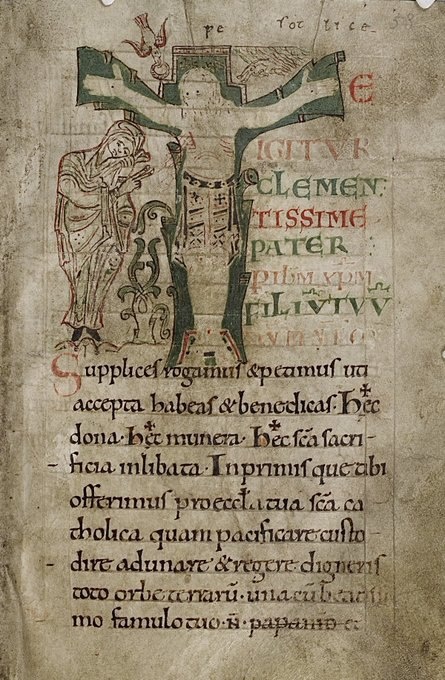 E
IGITVR
CLEMEN
TISSIME
PATER
FILIVTVV
Supplices rogamus & petimus uti
accepta habeas & benedicas. Hec
dona. Hec munera. Hec scā sacri-
ficia inlibata. Inprimis que tibi
offerimus pro eccła tua scā ca
tholica quam pacificare custo
dire adunare & regere digneris
toto orbe terrarū. una cū
mo famulo tuo .n̄. papa et